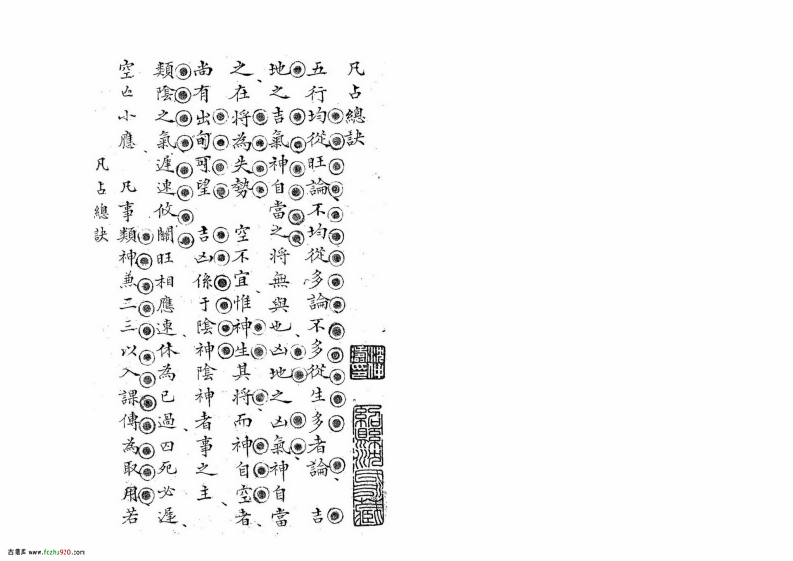 凡占總訣
五行均從旺論不均從多論不多從生多者論 吉
地之吉氣神自當之將無與也凶地之凶氣神自當
之在將為失勢 空不宜惟神生其將而神自空者
尚有出旬可望 吉凶係于陰神陰神者事之主
類陰之氣遲速攸關旺相應速休為已過囚死必遲
空亡小應 凡事類神兼二三以入課傳為取用若
凡占總訣
古易库 www.fczhu920.com